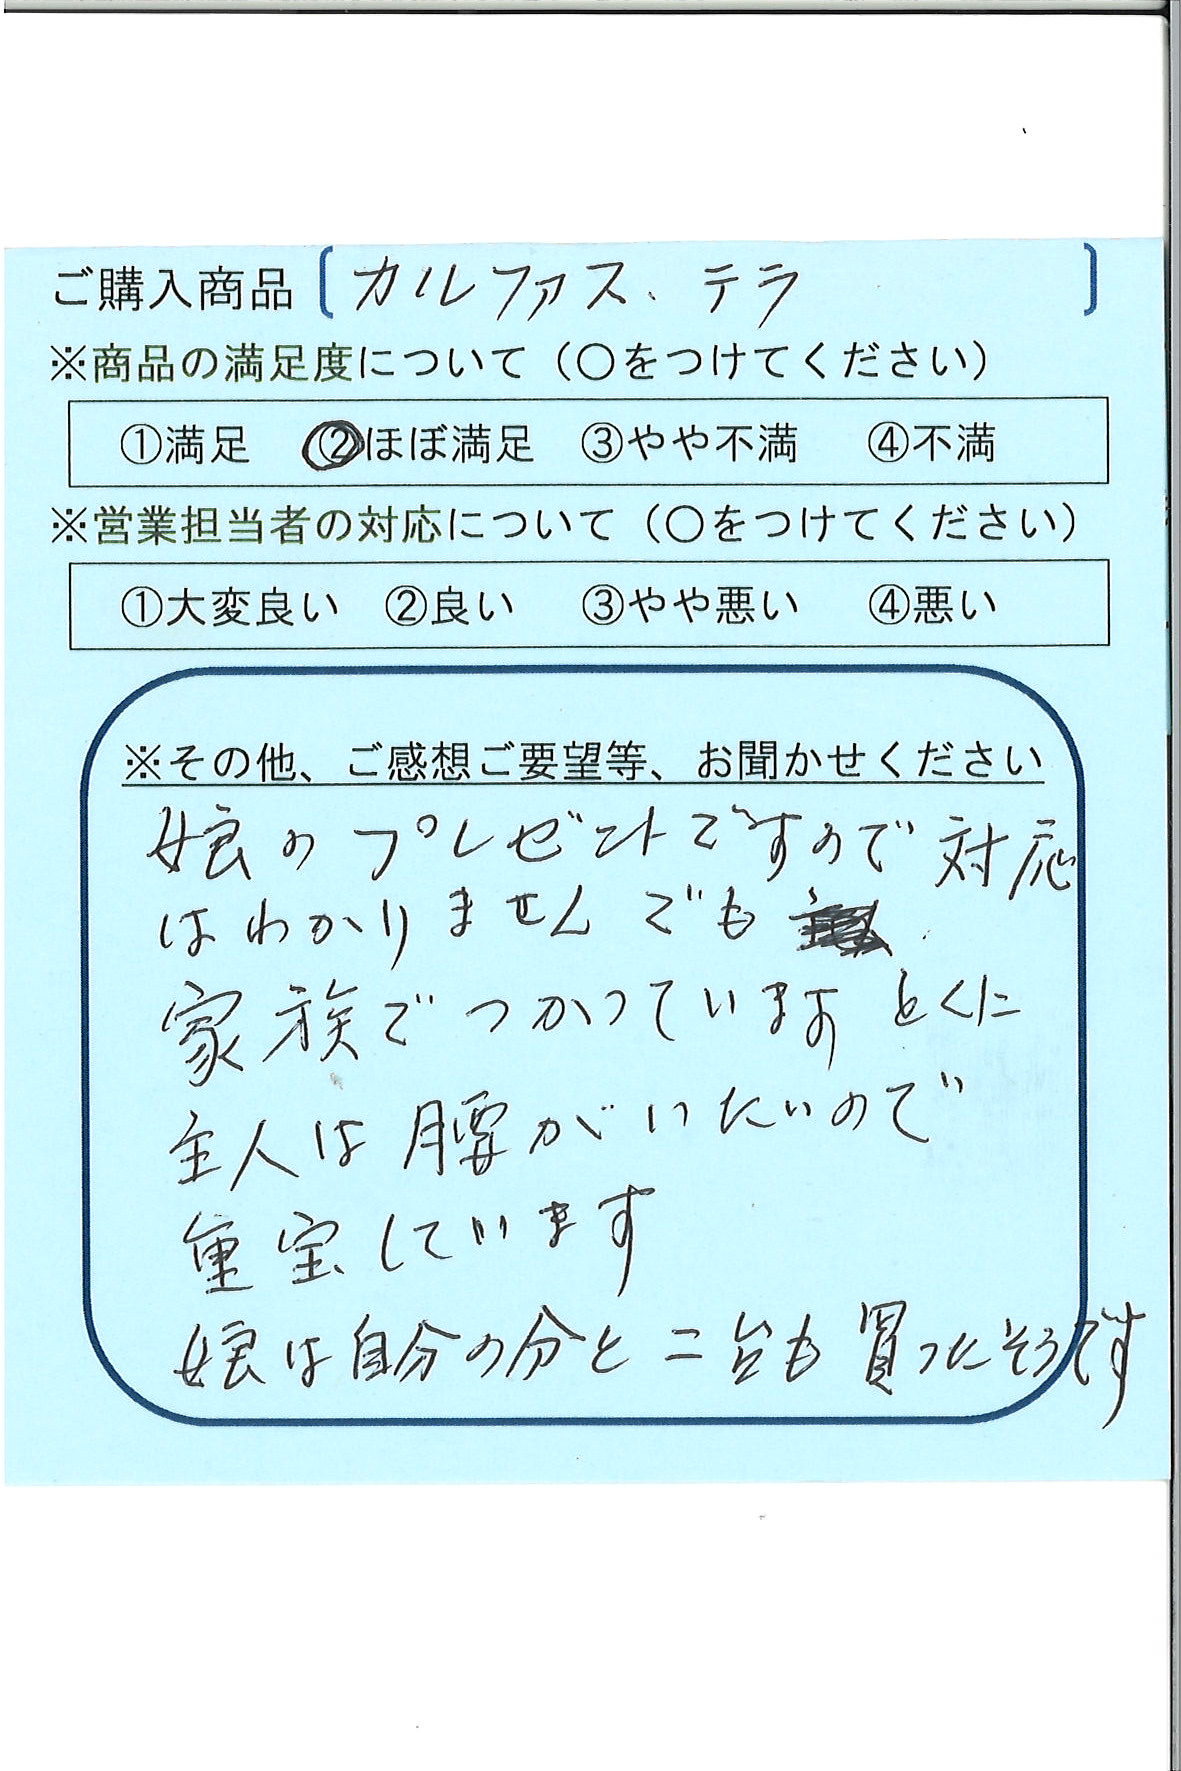 ご購入商品〔カルファス、テラ〕
※商品の満足度について（〇をつけてください）
①満足 ②ほぼ満足 ③やや不満 ④不満
※営業担当者の対応について（〇をつけてください）
①大変良い ②良い ③やや悪い ④悪い
※その他、ご感想ご要望等、お聞かせください
娘のプレゼントですので対応
はわかりませんでも
家族でつかっています とくに
主人は腰がいたいので
重宝しています
娘は自分の分と二台も買ったそうです